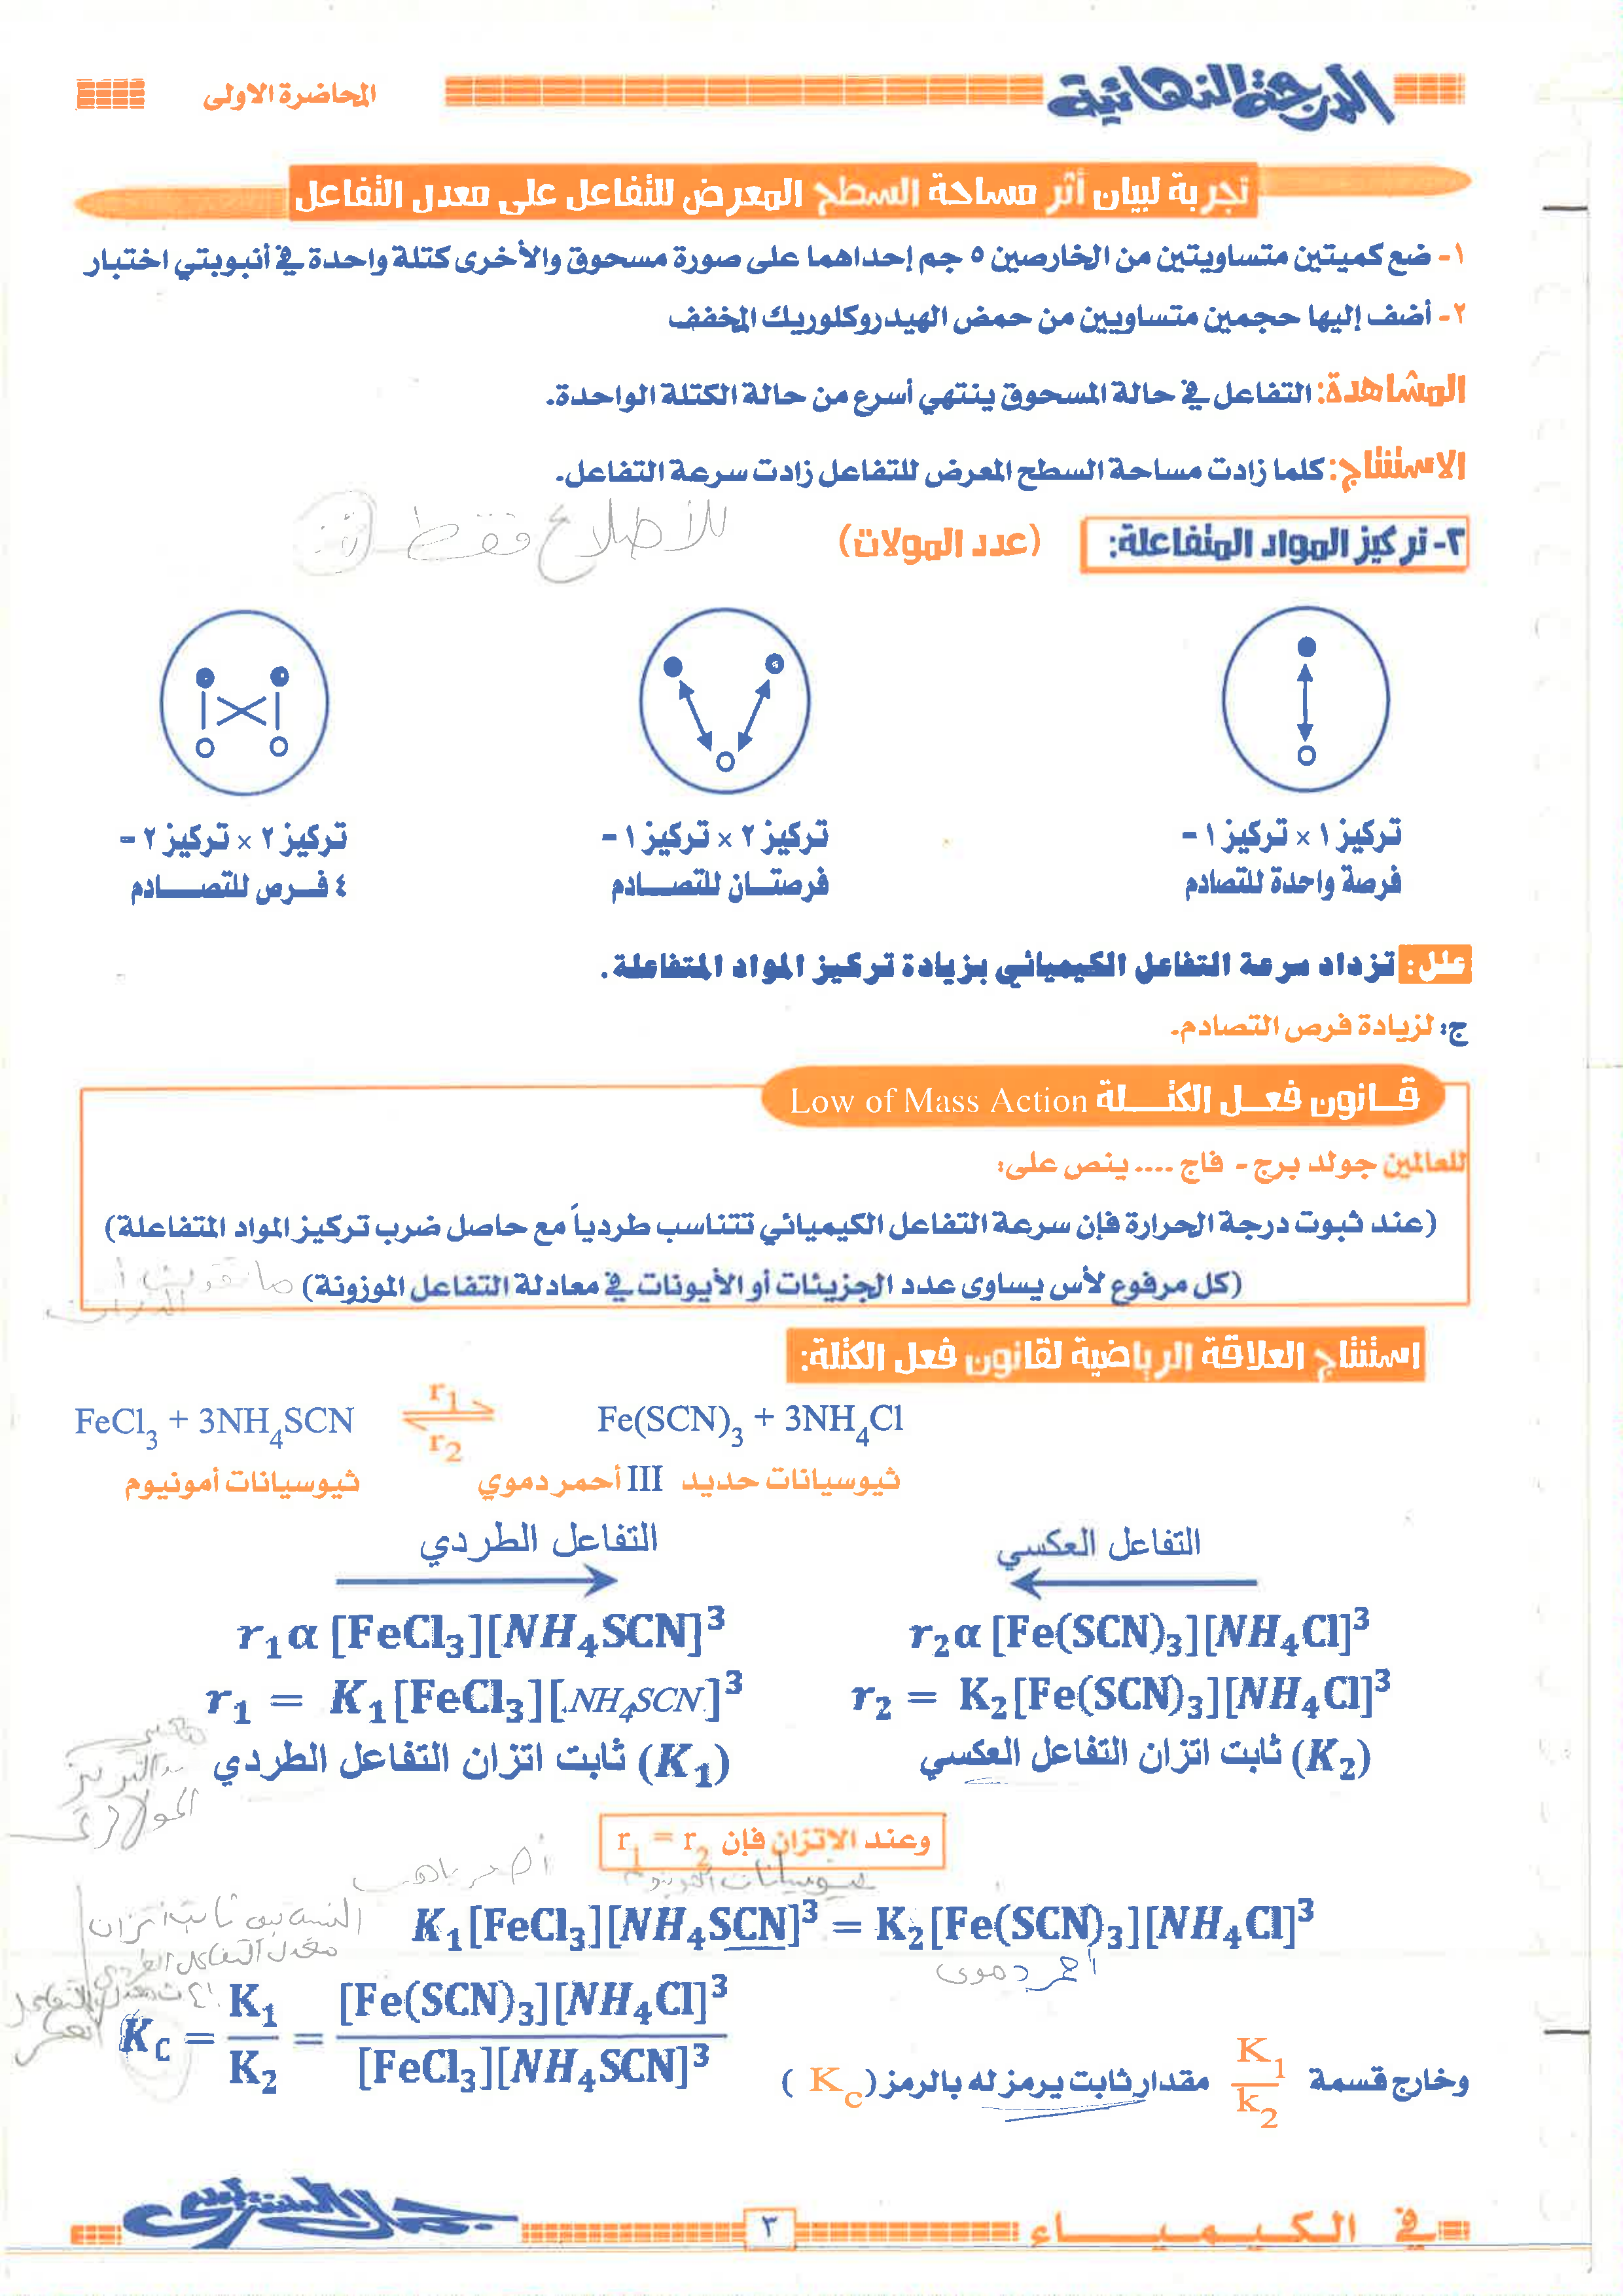 الدرجة النهائية
المحاضرة الاولى
تجربة لبيان أثر مساحة السطح المعرض للتفاعل على معدل التفاعل
١- ضع كميتين متساويتين من الخارصين ٥ جم إحداهما على صورة مسحوق والأخرى كتلة واحدة في أنبوبتي اختبار
٢- أضف إليها حجمين متساويين من حمض الهيدروكلوريك المخفف
المشاهدة: التفاعل في حالة المسحوق ينتهي أسرع من حالة الكتلة الواحدة.
الاستنتاج: كلما زادت مساحة السطح المعرض للتفاعل زادت سرعة التفاعل.
٢- تركيز المواد المتفاعلة: (عدد المولات) للأطلاع فقط
تركيز ١ × تركيز ١ -
فرصة واحدة للتصادم
تركيز ٢ × تركيز ١ -
فرصتان للتصادم
تركيز ٢ × تركيز ٢ -
٤ فرص للتصادم
علل: تزداد سرعة التفاعل الكيميائي بزيادة تركيز المواد المتفاعلة.
ج: لزيادة فرص التصادم.
قانون فعل الكتلة Low of Mass Action
للعالمين جولد برج - فاج .... ينص على:
(عند ثبوت درجة الحرارة فإن سرعة التفاعل الكيميائي تتناسب طردياً مع حاصل ضرب تركيز المواد المتفاعلة)
(كل مرفوع لأس يساوى عدد الجزيئات أو الأيونات في معادلة التفاعل الموزونة)
استنتاج العلاقة الرياضية لقانون فعل الكتلة:
FeCl₃ + 3NH₄SCN r₁ ⇌ r₂ Fe(SCN)₃ + 3NH₄Cl
ثيوسيانات أمونيوم
ثيوسيانات حديد III أحمر دموي
التفاعل الطردي
التفاعل العكسي
r₁ α [FeCl₃][NH₄SCN]³
r₂ α [Fe(SCN)₃][NH₄Cl]³
r₁ = K₁[FeCl₃][NH₄SCN]³
r₂ = K₂[Fe(SCN)₃][NH₄Cl]³
(K₁) ثابت اتزان التفاعل الطردي
(K₂) ثابت اتزان التفاعل العكسي
وعند الاتزان فإن r₁ = r₂
K₁[FeCl₃][NH₄SCN]³ = K₂[Fe(SCN)₃][NH₄Cl]³
أحمر دموى
K_C = K₁/K₂ = [Fe(SCN)₃][NH₄Cl]³ / [FeCl₃][NH₄SCN]³
وخارج قسمة K₁/k₂ مقدار ثابت يرمز له بالرمز (K_c)
في الكيمياء
٣